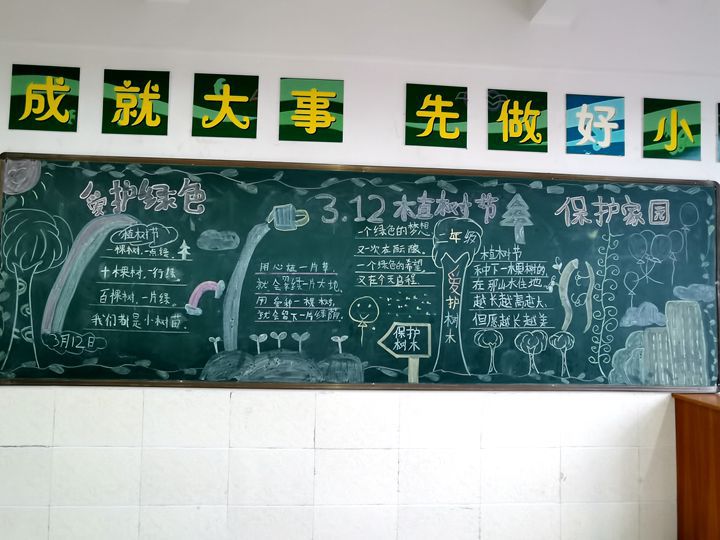 成就大事 先做好小
爱护绿色
3.12植树节
保护家园
植树节
一棵树,一点绿,
十棵树,一行绿,
百棵树,一片绿,
我们都是小树苗.
3月12日
用心植一片节,
就会绿一片大地,
用爱种一棵树,
就会留下一片绿荫
一个绿色的梦想
又一次在
一个绿色的希望,
又在今天启程
保护
树木
一年级
爱护树木
植树节
种下一棵树的
在那山水住地
越长越高越大,
但愿越长越美